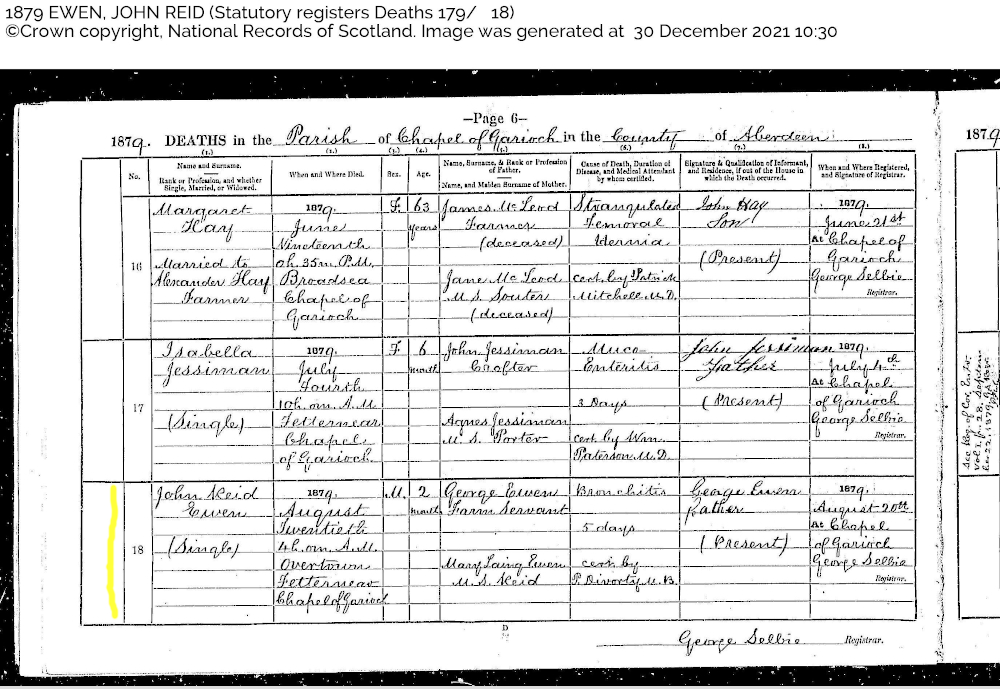 1879 EWEN, JOHN REID (Statutory registers Deaths 179/ 18)
©Crown copyright, National Records of Scotland. Image was generated at 30 December 2021 10:30
—Page 6—
1879. DEATHS in the Parish of Chapel of Garioch in the County of Aberdeen
(1.) (2.) (3.) (4.) (5.) (6.) (7.) (8.)
No.
Name and Surname.
Rank or Profession, and whether Single, Married, or Widowed.
When and Where Died.
Sex.
Age.
Name, Surname, & Rank or Profession of Father.
Name, and Maiden Surname of Mother.
Cause of Death, Duration of Disease, and Medical Attendant by whom certified.
Signature & Qualification of Informant, and Residence, if out of the House in which the Death occurred.
When and Where Registered, and Signature of Registrar.
16
Margaret
Hay
Married to
Alexander Hay
Farmer
1879.
June
Nineteenth
0h. 35m. P.M.
Broadsea
Chapel of
Garioch
F.
63
years
James McLeod
Farmer
(deceased)
Jane McLeod
M.S. Souter
(deceased)
Strangulated
Femoral
Hernia
cert. by Patrick
Mitchell M.D.
John Hay
Son
(Present)
1879.
June 21st
At Chapel of
Garioch
George Selbie
Registrar.
17
Isabella
Jessiman
(Single)
1879.
July
Fourth
10h. 0m. A.M.
Fetternear
Chapel
of Garioch
F.
6
months
John Jessiman
Crofter
Agnes Jessiman
M.S. Porter
Muco-
Enteritis
3 Days
cert. by Wm.
Paterson M.D.
John Jessiman
Father
(Present)
1879.
July 4th
At Chapel
of Garioch
George Selbie
Registrar.
18
John Reid
Ewen
(Single)
1879.
August
Twentieth
4h. 0m. A.M.
Overtown
Fetternear
Chapel of Garioch
M.
2
months
George Ewen
Farm Servant
Mary Laing Ewen
M.S. Reid
Bronchitis
5 days
cert. by
P. Divorty M.B.
George Ewen
Father
(Present)
1879.
August 20th
At Chapel
of Garioch
George Selbie
Registrar.
D
George Selbie Registrar.
1879